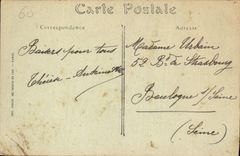 60
Carte Postale
Correspondance
Adresse
Baisers pour tous
Thérèse - Antoinette
Madame Urbain
52 Bd de Strasbourg
Boulogne s/ Seine
(Seine)